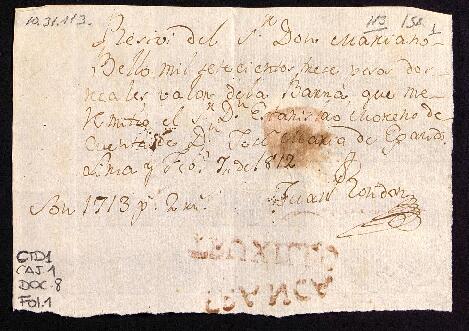 10.31.113.
113 158 1
Resivi del Sr. Don Mariano
Bello mil setecientos trese pesos dos
reales valor de la Barra que me
remitio el Sr. Dn. Estanislao Moreno de
Cuenta de Dn. Jose Maria de
Lima y 7 de 1812
Juan Rondon
Son 1713 ps. 2 rs.
TRUXILLO
FRANCA
CTD1
CAJ.1
DOC.8
FOL.1